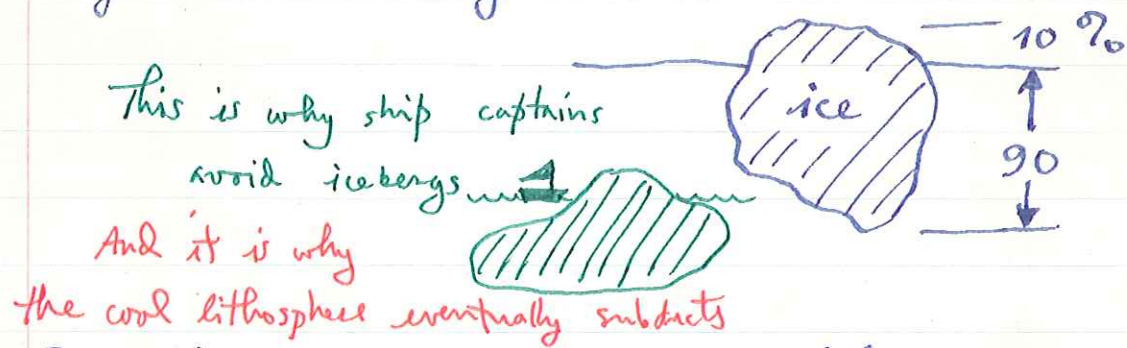 10 %
This is why ship captains
ice
avoid icebergs
90
And it is why
the cool lithosphere eventually subducts